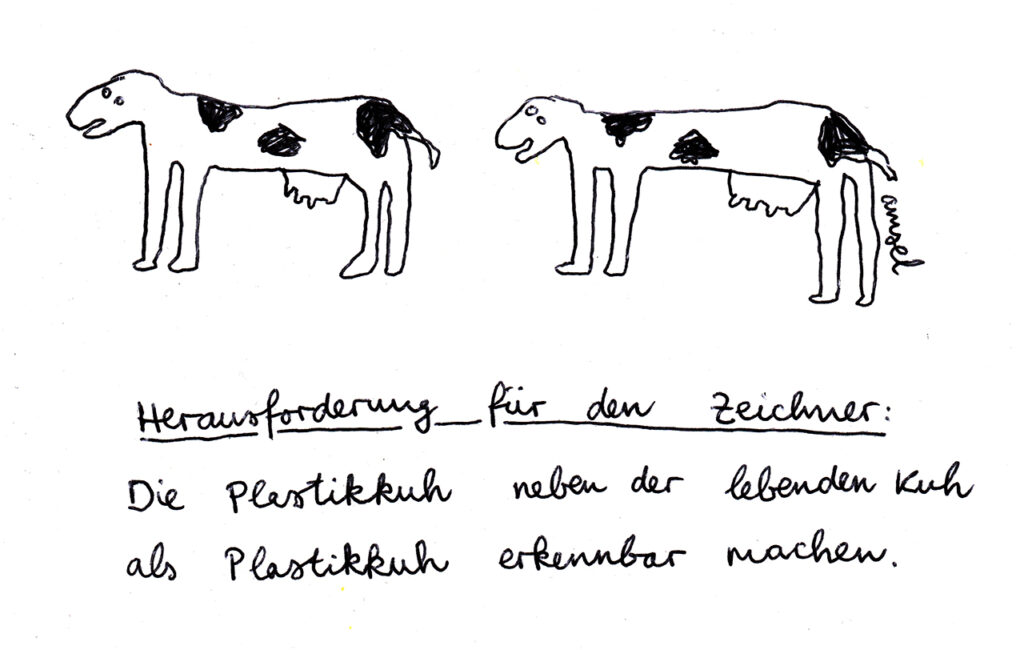 amsel
Herausforderung für den Zeichner:
Die Plastikkuh neben der lebenden Kuh
als Plastikkuh erkennbar machen.